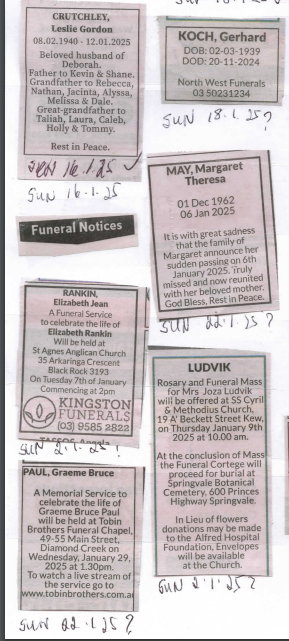 CRUTCHLEY,
Leslie Gordon
08.02.1940 - 12.01.2025
Beloved husband of
Deborah.
Father to Kevin & Shane.
Grandfather to Rebecca,
Nathan, Jacinta, Alyssa,
Melissa & Dale.
Great-grandfather to
Taliah, Laura, Caleb,
Holly & Tommy.
Rest in Peace.
SUN 16.1.25
SUN 16.1.25
Funeral Notices
RANKIN,
Elizabeth Jean
A Funeral Service
to celebrate the life of
Elizabeth Rankin
Will be held at
St Agnes Anglican Church
35 Arkaringa Crescent
Black Rock 3193
On Tuesday 7th of January
Commencing at 2pm
KINGSTON
FUNERALS
(03) 9585 2822
SUN 2.1.25 ?
PAUL, Graeme Bruce
A Memorial Service to
celebrate the life of
Graeme Bruce Paul
will be held at Tobin
Brothers Funeral Chapel,
49-55 Main Street,
Diamond Creek on
Wednesday, January 29,
2025 at 1.30pm.
To watch a live stream of
the service go to
www.tobinbrothers.com.au
SUN 22.1.25 ?
KOCH, Gerhard
DOB: 02-03-1939
DOD: 20-11-2024
North West Funerals
03 50231234
SUN 18.1.25?
MAY, Margaret
Theresa
01 Dec 1962
06 Jan 2025
It is with great sadness
that the family of
Margaret announce her
sudden passing on 6th
January 2025. Truly
missed and now reunited
with her beloved mother.
God Bless, Rest in Peace.
SUN 22.1.25 ?
LUDVIK
Rosary and Funeral Mass
for Mrs Joza Ludvik
will be offered at SS Cyril
& Methodius Church,
19 A' Beckett Street Kew,
on Thursday January 9th
2025 at 10.00 am.
At the conclusion of Mass
the Funeral Cortege will
proceed for burial at
Springvale Botanical
Cemetery, 600 Princes
Highway Springvale.
In Lieu of flowers
donations may be
made to the Alfred Hospital
Foundation, Envelopes
will be available
at the Church.
SUN 2.1.25?